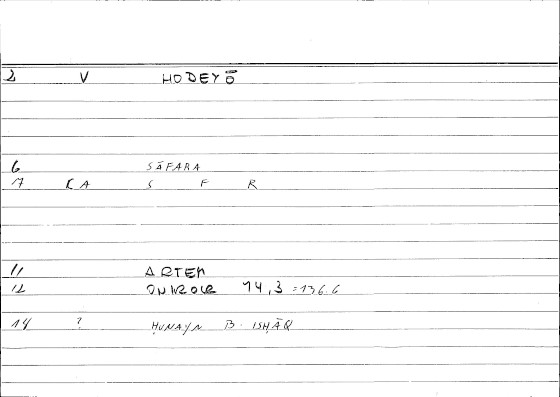 2 V HODEYŌ
6 SĀFARA
7 KA S F R
11 ARTEM
12 ONIROCR 14,3 =136.6
14 ? ḤUNAYN B. ISḤĀQ